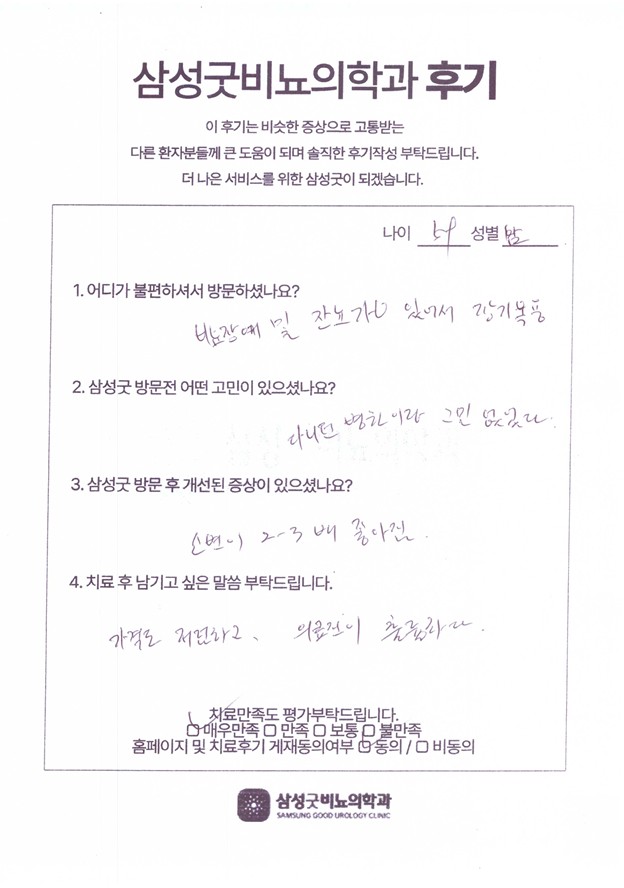 삼성굿비뇨의학과 후기
이 후기는 비슷한 증상으로 고통받는
다른 환자분들께 큰 도움이 되며 솔직한 후기작성 부탁드립니다.
더 나은 서비스를 위한 삼성굿이 되겠습니다.
나이 성별 남
1. 어디가 불편하셔서 방문하셨나요?
및 잔뇨가 있어서 장기복용
2. 삼성굿 방문전 어떤 고민이 있으셨나요?
다니던 병원이라 고민 없었다.
3. 삼성굿 방문 후 개선된 증상이 있으셨나요?
소변이 2-3배 좋아짐.
4. 치료 후 남기고 싶은 말씀 부탁드립니다.
가격도 저렴하고, 의료진이 훌륭하다.
치료만족도 평가부탁드립니다.
매우만족 만족 보통 불만족
홈페이지 및 치료후기 게재동의여부 동의 / 비동의
삼성굿비뇨의학과
SAMSUNG GOOD UROLOGY CLINIC